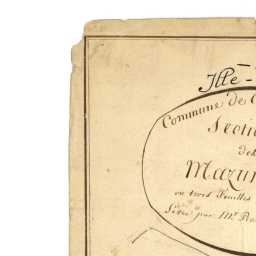 Ille-
Commune de
Section
de
Mazur
en trois feuilles
par Mr.